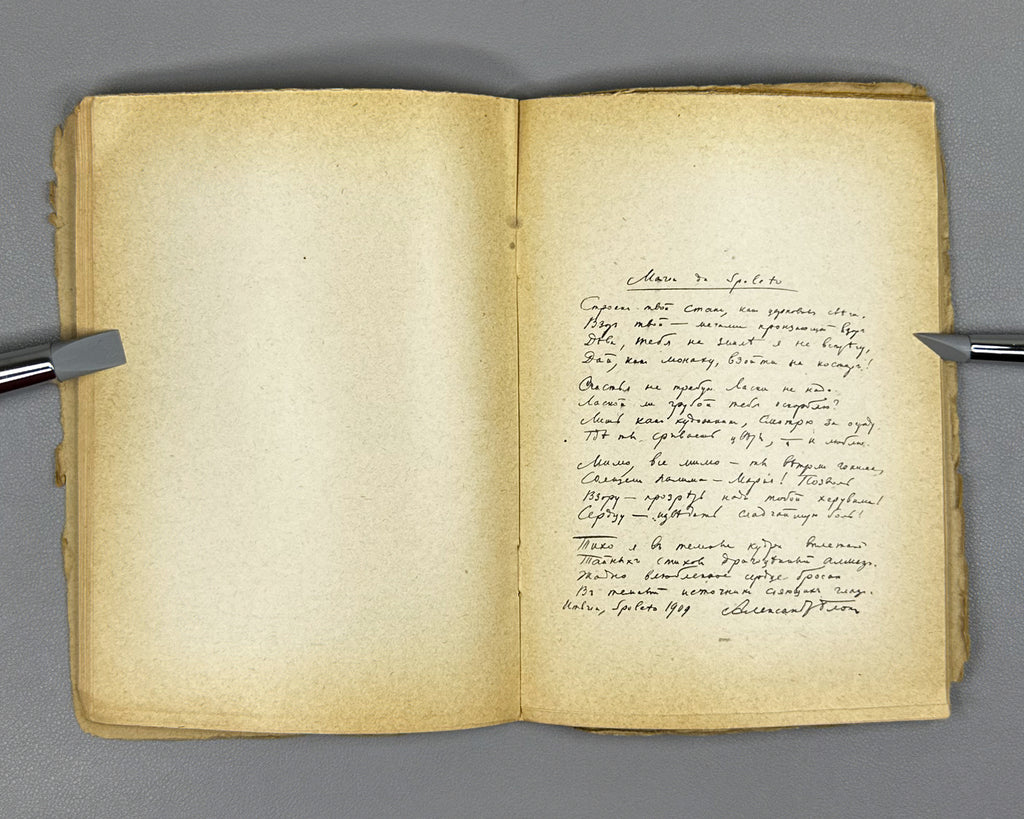 Maria da Spoleto
Строен твой стан, как церковныя свѣчи.
Взор твой — мечами пронзающий взор
Дѣва, тебя на землѣ я не встрѣчу,
Дай, как монаху, взойти на костер!
Счастья не требую. Ласки не надо.
Лаской ли грубой тебя оскорблю?
Лишь как художник, смотрю за ограду
Гдѣ ты срываешь цвѣты, — и люблю.
Мимо, все мимо — ты вѣтром гонима,
Солнцем палима — Марія! Позволь
Взору — прозрѣть над тобой херувима!
Сердцу — извѣдать сладчайшую боль!
Тихо я въ темные кудри вплетаю
Тайных стихов драгоцѣнный алмаз.
Жадно влюбленное сердце бросаю
Въ темный источник сіяющих глаз.
Spoleto 1909 Александр Блок